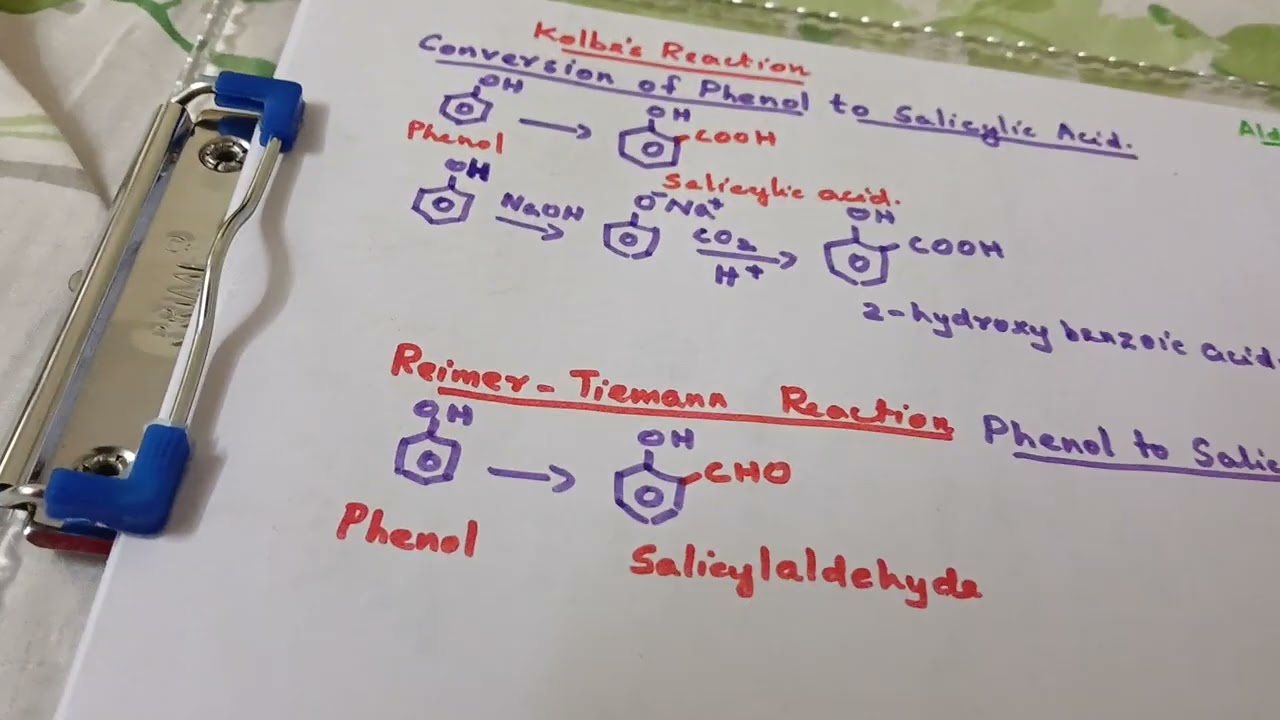 Kolbe's Reaction
Conversion of Phenol to Salicylic Acid.
Ald
OH
OH
COOH
Phenol
Salicylic acid.
OH
NaOH
O⁻Na⁺
CO₂
H⁺
OH
COOH
2-hydroxy benzoic acid.
Reimer-Tiemann Reaction Phenol to Salic
OH
OH
CHO
Phenol
Salicylaldehyde